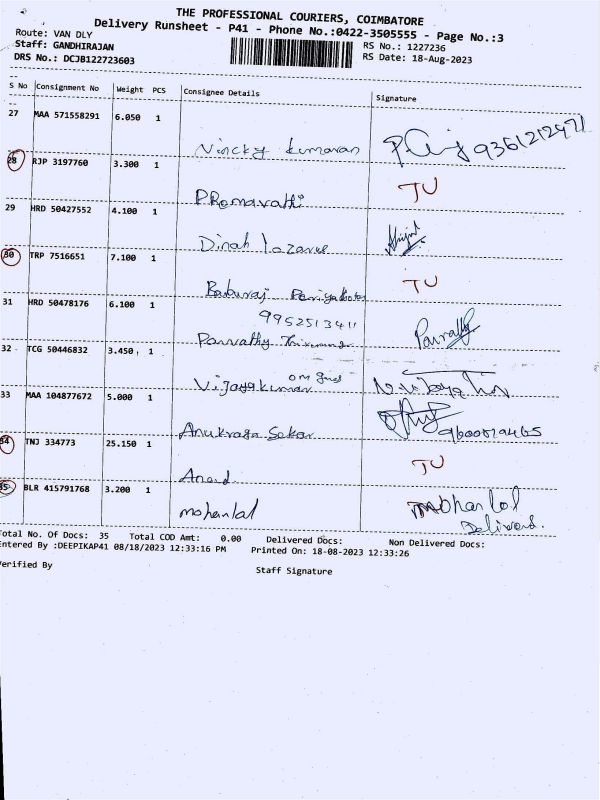 THE PROFESSIONAL COURIERS, COIMBATORE
Delivery Runsheet - P41 - Phone No.:0422-3505555 - Page No.:3
Route: VAN DLY
RS No.: 1227236
Staff: GANDHIRAJAN
RS Date: 18-Aug-2023
DRS No.: DCJB122723603
S No Consignment No Weight PCS Consignee Details Signature
27 MAA 571558291 6.050 1
Vincky kumaran 9361212971
28 RJP 3197760 3.300 1 TU
PRemavathi
29 HRD 50427552 4.100 1
Dinah lazarus
30 TRP 7516651 7.100 1 TU
Baburaj
31 HRD 50478176 6.100 1 9952513411
Parvathy Parvathy
32 TCG 50446832 3.450 1
Vijayakumar
33 MAA 104877672 5.000 1
Anukraga Sekar 9600819465
34 TNJ 334773 25.150 1 TU
Anand
35 BLR 415791768 3.200 1
mohanlal mohanlal
Delivered.
Total No. Of Docs: 35 Total COD Amt: 0.00 Delivered Docs: Non Delivered Docs:
Entered By :DEEPIKAP41 08/18/2023 12:33:16 PM Printed On: 18-08-2023 12:33:26
Verified By
Staff Signature